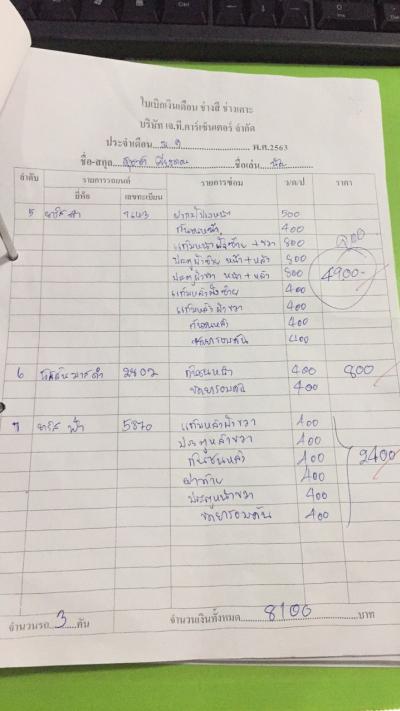 ใบเบิกเงินเดือน ช่างสี ช่างเคาะ
บริษัท เจ.ที.คาร์เซ็นเตอร์ จำกัด
ประจำเดือน ม.ค พ.ศ.2563
ชื่อ-สกุล ชื่อเล่น
ลำดับ รายการรถยนต์ รายการซ่อม ว/ด/ป ราคา
ยี่ห้อ เลขทะเบียน
5 ฝากระโปรงหน้า 500
กันชนหน้า 400
แก้มหน้าฝั่งซ้าย + ขวา 800
ประตูฝั่งซ้าย หน้า + หลัง 800
ประตูฝั่งขวา หน้า + หลัง 800 4900-
แก้มหลังฝั่งซ้าย 400
แก้มหลังฝั่งขวา 400
กันชนหลัง 400
ขัดยารอบคัน 400
6 2802 กันชนหน้า 400 800
ขัดยารอบคัน 400
7 ยาริส ฟ้า 5870 แก้มหลังฝั่งขวา 400
ประตูหลังขวา 400
กันชนหลัง 400 2400
ฝาท้าย 400
ประตูหน้าขวา 400
ขัดยารอบคัน 400
จำนวนรถ 3 คัน จำนวนเงินทั้งหมด 8100 บาท